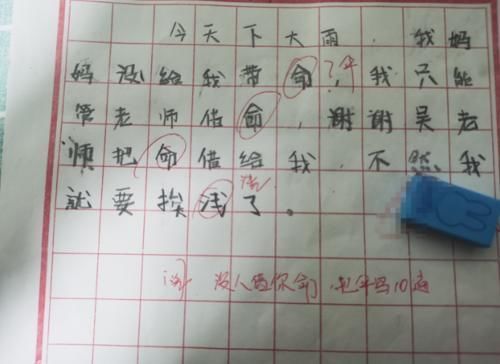 今天下大雨,我妈
妈没给我带命,我只能
伞
管老师借命,谢谢吴老
师把命借给我,不然我
就要挨浅了。
没人借你命,把伞写10遍